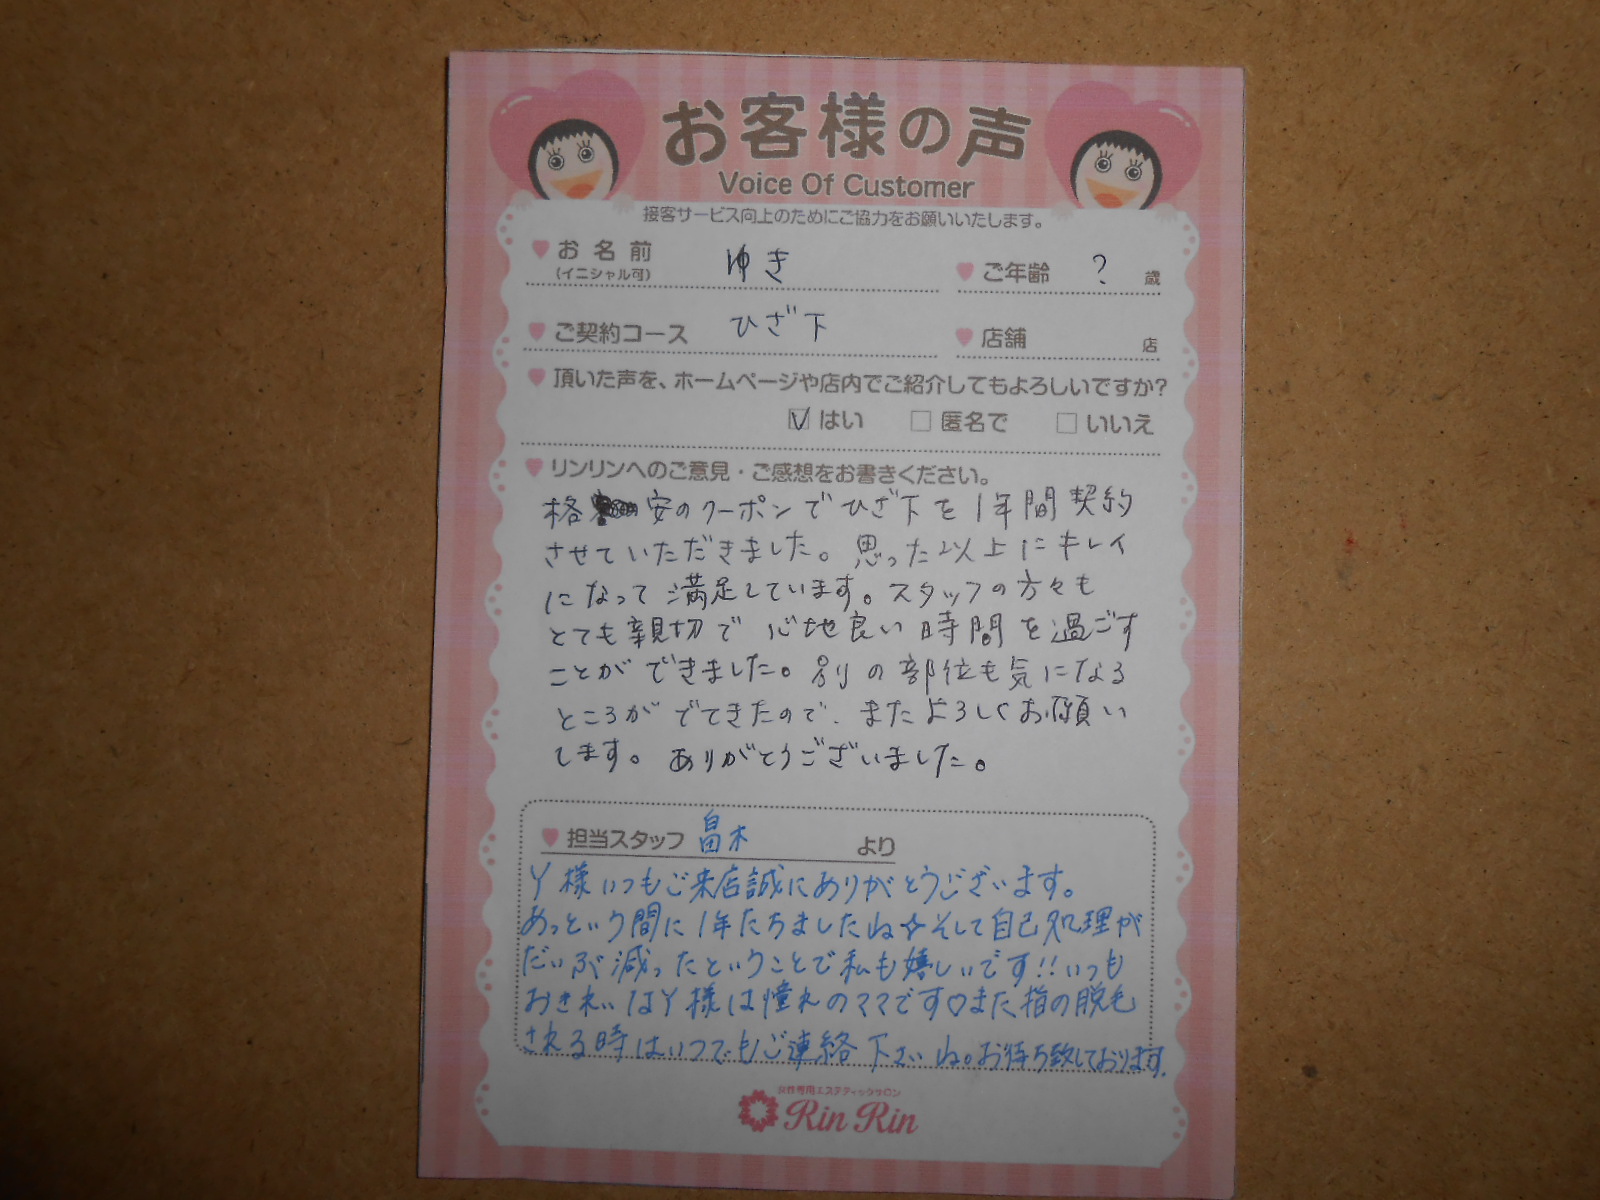 お客様の声
Voice Of Customer
接客サービス向上のためにご協力をお願いいたします。
お名前 ゆき ご年齢 ? 歳
(イニシャル可)
ご契約コース ひざ下 店舗 店
頂いた声を、ホームページや店内でご紹介してもよろしいですか?
☑ はい □ 匿名で □ いいえ
リンリンへのご意見・ご感想をお書きください。
格安のクーポンでひざ下を1年間契約
させていただきました。思った以上にキレイ
になって満足しています。スタッフの方々も
とても親切で心地良い時間を過ごす
ことができました。別の部位も気になる
ところがでてきたので、またよろしくお願い
します。ありがとうございました。
担当スタッフ 畠木 より
Y様いつもご来店誠にありがとうございます。
あっという間に1年たちましたね☆そして自己処理が
だいぶ減ったということで私も嬉しいです!!いつも
おきれいなY様は憧れのママです♡また指の脱毛
される時はいつでもご連絡下さいね。お待ち致しております。
女性専用エステティックサロン
Rin Rin